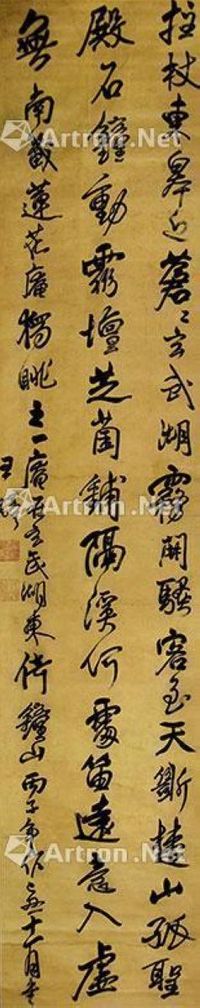 拄杖東皋近蒼〻玄武湖霧開騷客至天斷楚山孤聖
殿石鐘動靈壇芝菌鋪隔溪何處笛遠意入虛
無 南嶽蓮花庵獨眺之一庵在玄武湖東倚鐘山丙子年作 十一月書
王鐸
Artron.Net
Artron.Net
Artron.Net
Artron.Net